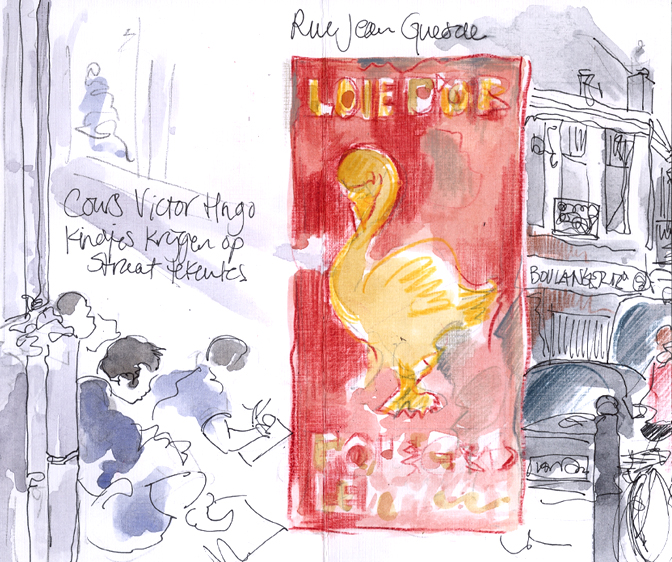 Rue Jean Guesde
LOIE D'OR
Cours Victor Hugo
Kindjes krijgen op
Straat tekenles
BOULANGERIE